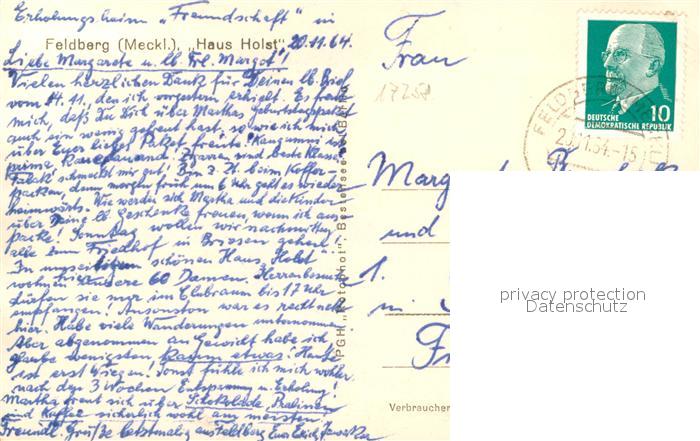 Erholungsheim "Freundschaft" in
Feldberg (Meckl.), "Haus Holst" 20.11.64.
Liebe Margarete u. lb. Frl. Margot!
Vielen herzlichen Dank für Deinen lb. Brief
vom 11., den ich vorgestern erhielt. Es freut
mich, daß Du Dich über Marthas Geburtstagspaket
auch ein wenig gefreut hast, so wie ich mich
über Euer liebes Paket freute! Kaugummi ist
prima Zigarren sind beste Klasse
Tabak schmeckt mir gut! Bin z. Zt. beim Koffer-
packen, denn morgen früh um 6 Uhr geht es wieder
heimwärts. Wie werden sich Martha und die Kinder
über lb. Geschenke freuen, wenn ich aus
packe! Sonntag wollen wir nachmittag
alle zum Friedhof in Briesen gehen!
In schönen Haus "Holst"
wohnen 60 Damen. Herrenbesuche
dürfen sie nur im Clubraum bis 17 Uhr
empfangen! Ansonsten war es recht nett
hier. Habe viele Wanderungen unternommen
Aber abgenommen an Gewicht habe ich
glaube wenigsten kaum etwas! Heute
ist erst Wiegen! Sonst fühle ich mich wohler
nach den 3 Wochen Entspannung u. Erholung!
Martha freut sich über Schokolade, Pralinen
und Kaffee sicherlich wohl am meisten.
Freundl. Grüße letztmalig aus Feldberg Euer Erich
PGH "Fotophot"
Frau
17258
DEUTSCHE
DEMOKRATISCHE REPUBLIK
10
FELDBERG
und
1.
in
privacy protection
Datenschutz
Verbraucher